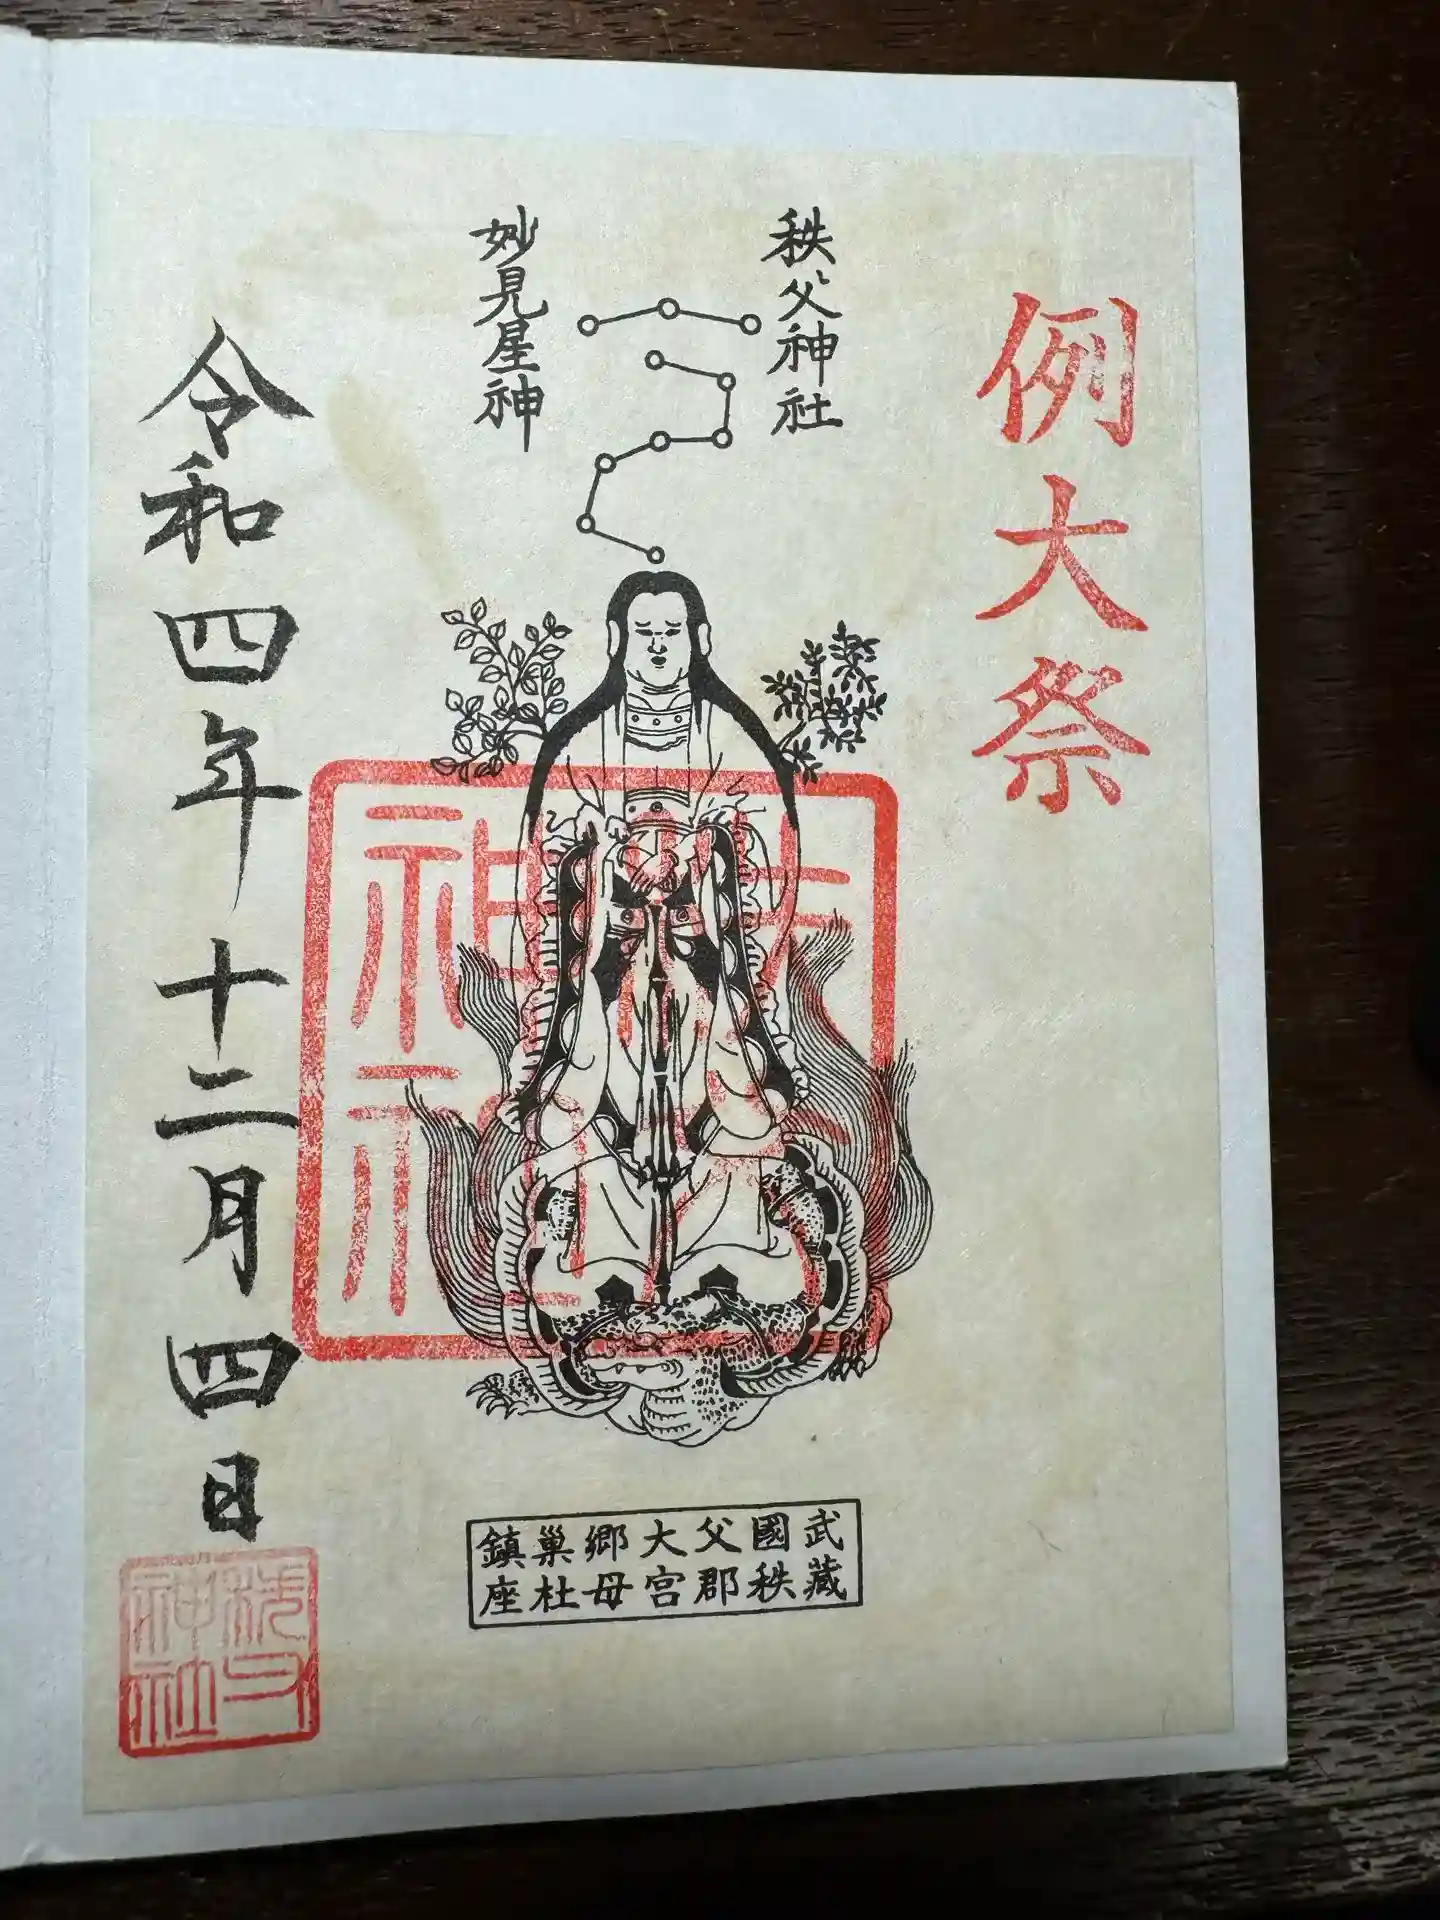 例大祭
秩父神社
妙見星神
令和四年十二月四日
武藏
國秩
父郡
大宮
郷母
巢杜
鎮座
秩父
神社